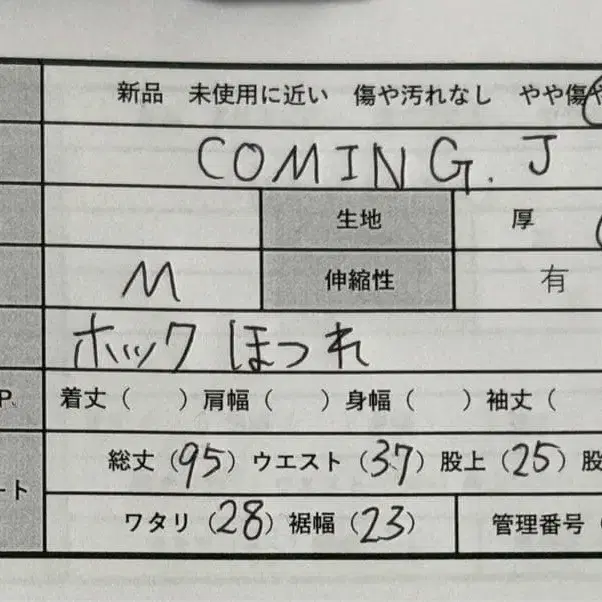 新品 未使用に近い 傷や汚れなし やや傷や
COMING. J
生地 厚
M 伸縮性 有
ホック ほつれ
P 着丈( ) 肩幅( ) 身幅( ) 袖丈(
総丈(95) ウエスト(37) 股上(25) 股
ート
ワタリ(28) 裾幅(23) 管理番号(